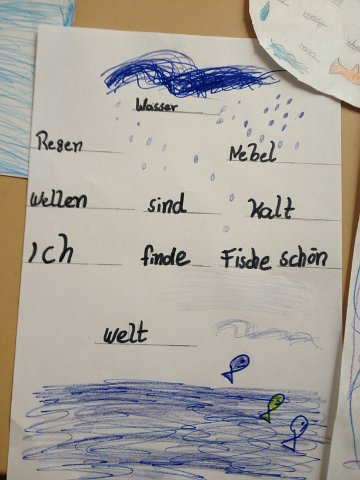 Wasser
Regen Nebel
Wellen sind Kalt
Ich finde Fische schön
Welt